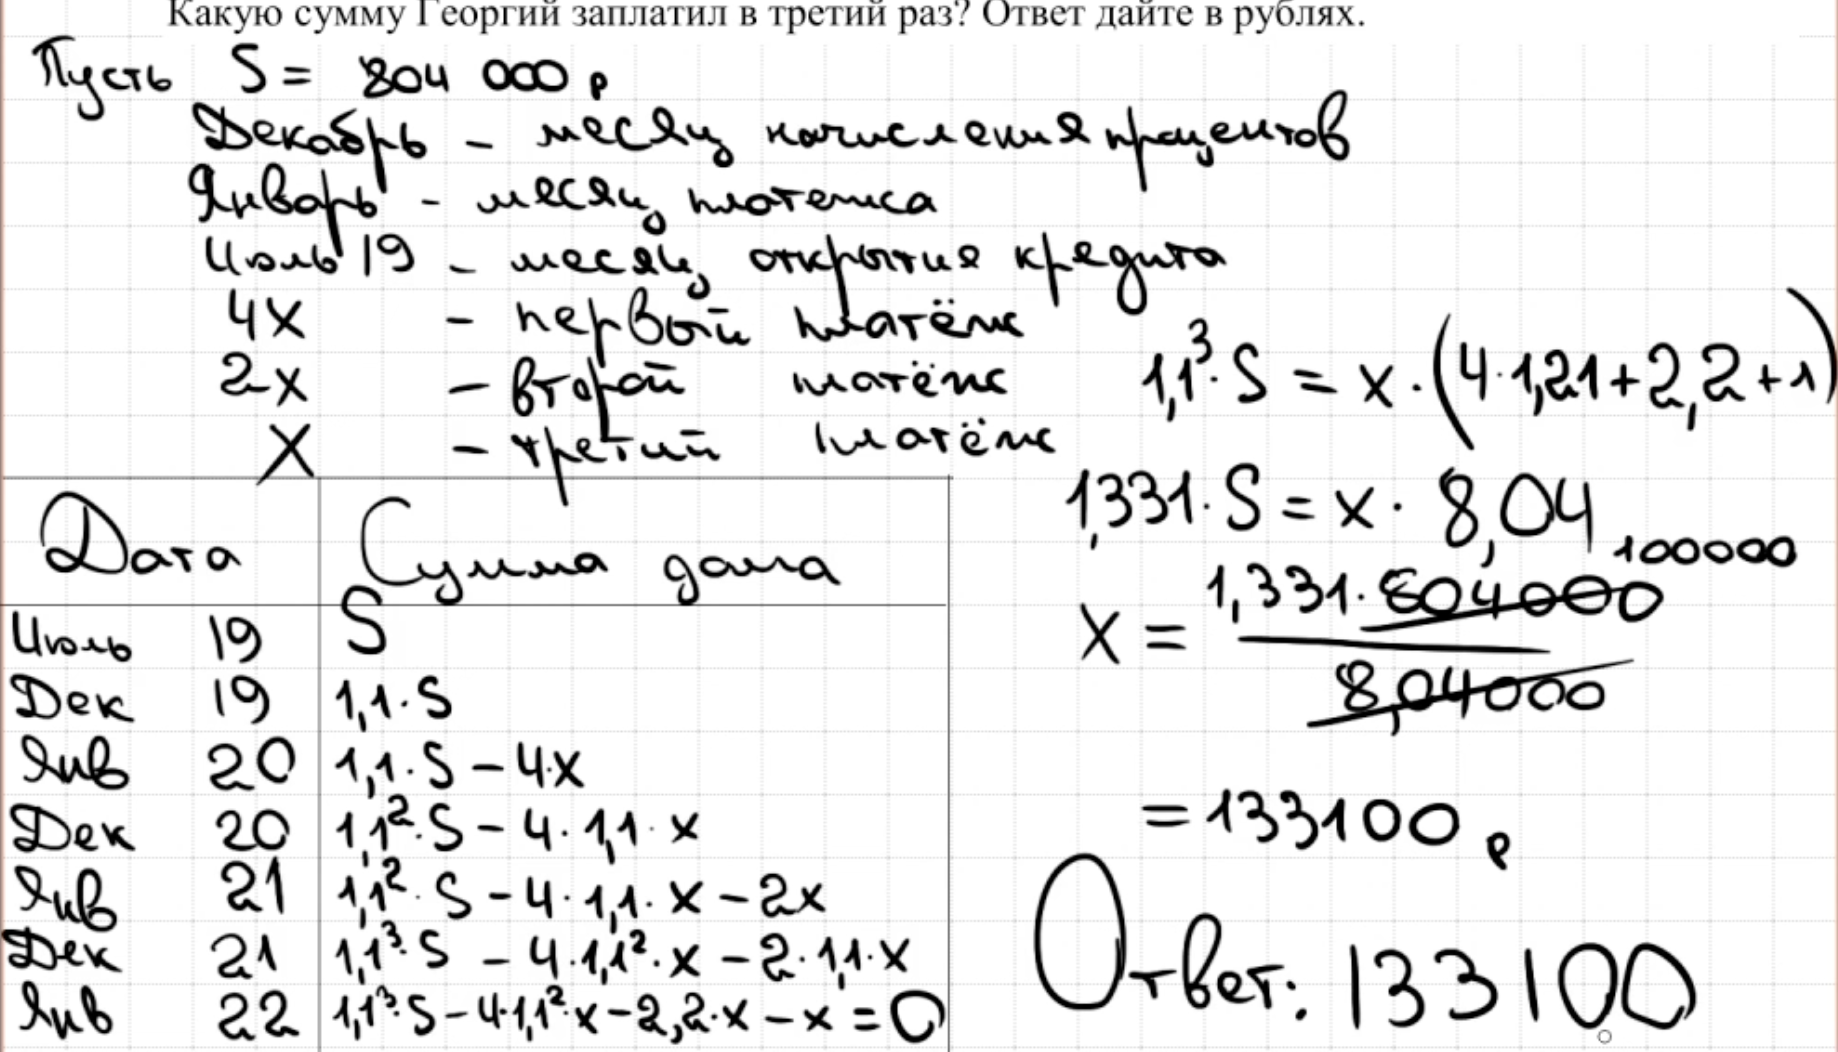 Какую сумму Георгий заплатил в третий раз? Ответ дайте в рублях.
Пусть S = 804 000 р
Декабрь - месяц начисления процентов
Январь - месяц платежа
Июль 19 - месяц открытия кредита
4x - первый платёж
2x - второй платёж
X - третий платёж
Дата Сумма долга
Июль 19 S
Дек 19 1,1·S
Янв 20 1,1·S - 4·x
Дек 20 1,1²·S - 4·1,1·x
Янв 21 1,1²·S - 4·1,1·x - 2x
Дек 21 1,1³·S - 4·1,1²·x - 2·1,1·x
Янв 22 1,1³·S - 4·1,1²·x - 2,2·x - x = 0
1,1³·S = x·(4·1,21+2,2+1)
1,331·S = x·8,04
100000
x = 1,331·804000
8,04000
= 133100 р
Ответ: 133100